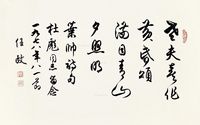 老夫喜作
黄昏颂
满目青山
夕照明
叶帅诗句
杜彪同志留念
一九七八年八一前
任政